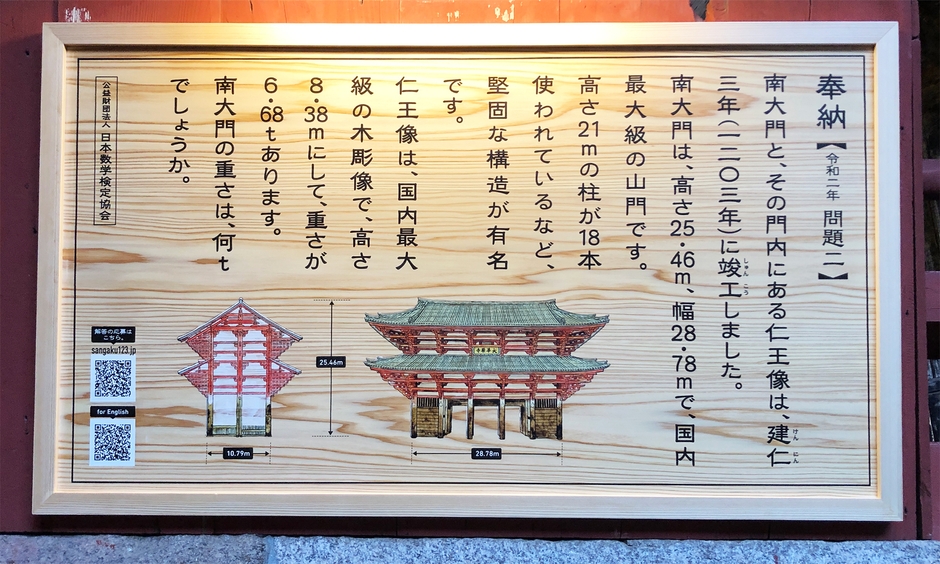 奉納【令和二年 問題二】
南大門と、その門内にある仁王像は、建仁
けんにん
三年(一二〇三年)に竣工しました。
しゅんこう
南大門は、高さ25・46m、幅28・78mで、国内
最大級の山門です。
高さ21mの柱が18本
使われているなど、
堅固な構造が有名
です。
仁王像は、国内最大
級の木彫像で、高さ
8・38mにして、重さが
6・68tあります。
南大門の重さは、何t
でしょうか。
公益財団法人 日本数学検定協会
25.46m
10.79m
28.78m
解答の応募は
こちら。
sangaku123.jp
for English